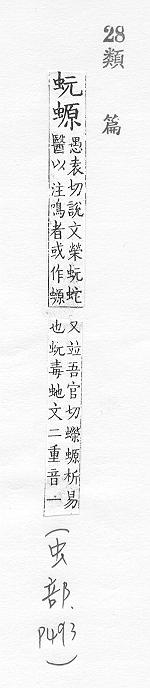 28
類篇
蚖螈
愚袁切說文榮蚖蛇
醫以注鳴者或作螈
又竝吾官切蠑螈析易
也蚖毒虵文二重音一
(虫部.P493)